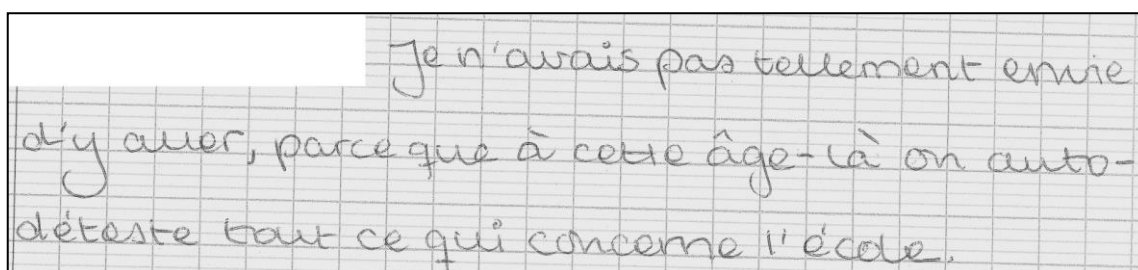 Je n'avais pas tellement envie
d'y aller, parce que à cette âge-là on auto-
déteste tout ce qui concerne l'école.